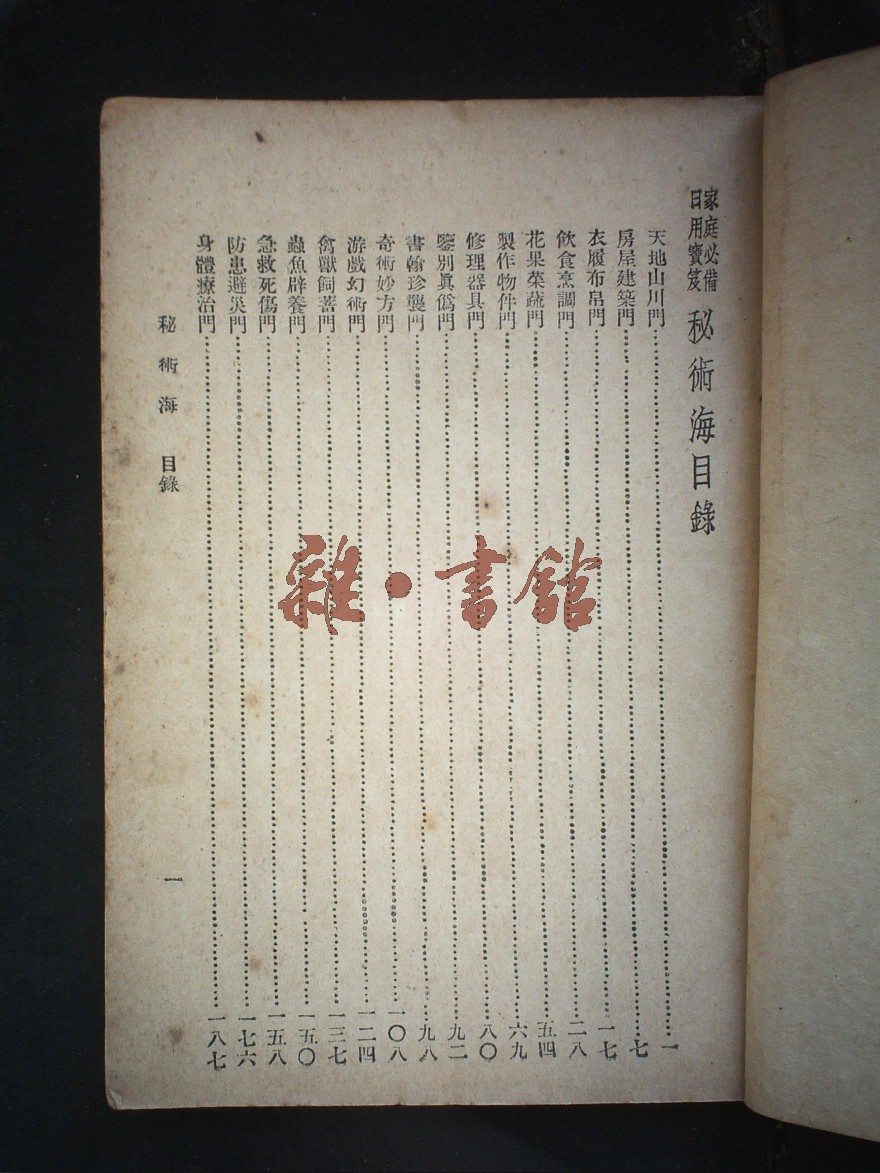 家庭必備
日用寶笈
秘術海目錄
天地山川門……一
房屋建築門……七
衣履布帛門……一七
飲食烹調門……二八
花果菜蔬門……五四
製作物件門……六九
修理器具門……八〇
鑒別眞僞門……九二
書翰珍襲門……九八
奇術妙方門……一〇八
游戲幻術門……一二四
禽獸飼蓄門……一三七
蟲魚辟養門……一五〇
急救死傷門……一五八
防患避災門……一七六
身體療治門……一八七
秘術海 目錄 一
雜·書館